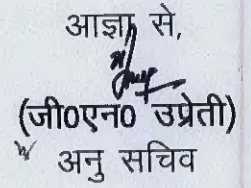 आज्ञा से,
(जी०एन० उप्रेती)
अनु सचिव